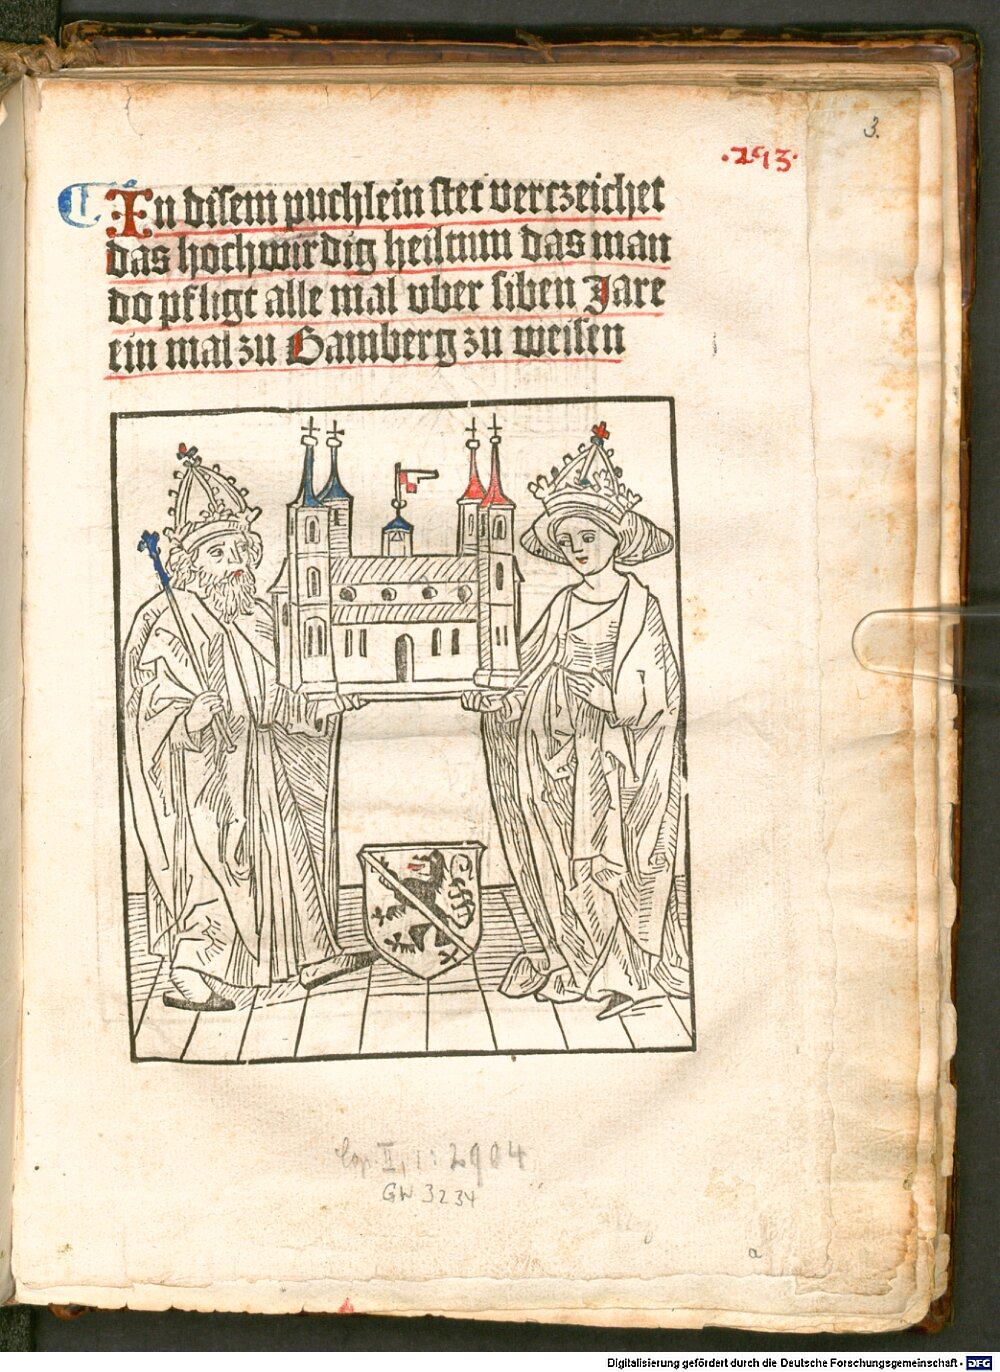 3.
.293.
In disem puchlein stet verczeichet
das hochwirdig heiltum das man
do pfligt alle mal vber siben Jare
ein mal zu Bamberg zu weisen
Cop. II, 1: 2904
GW 3234
a
Digitalisierung gefördert durch die Deutsche Forschungsgemeinschaft - DFG